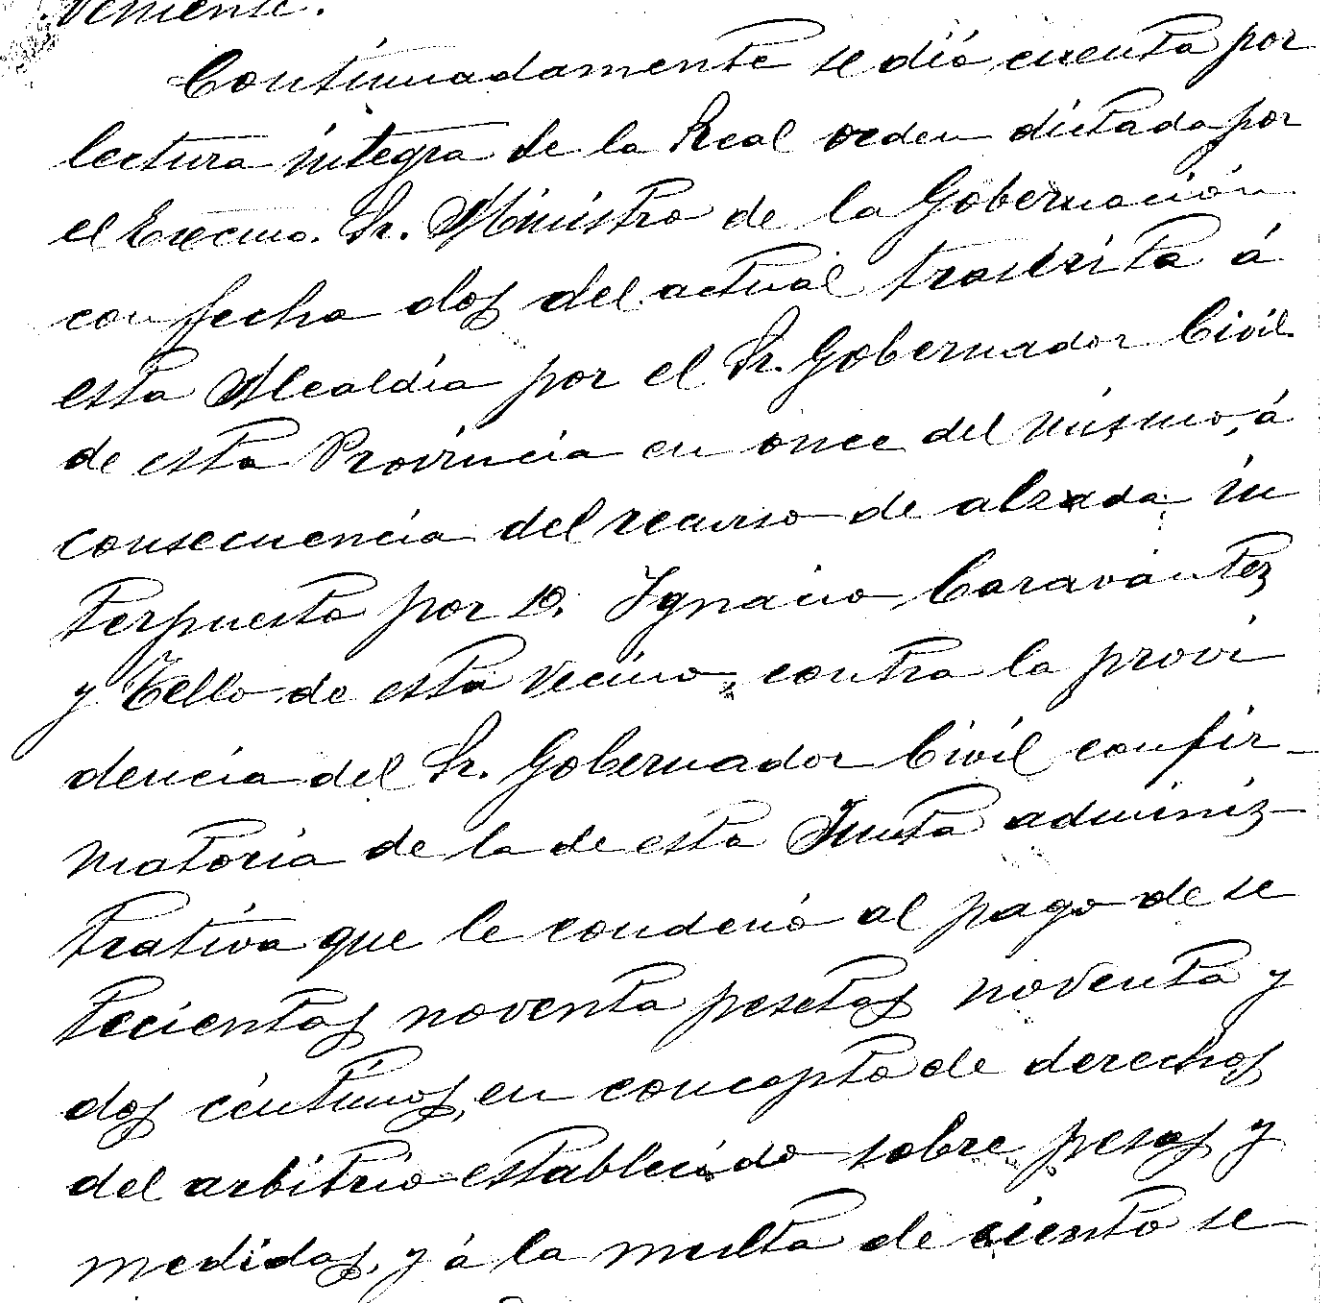 veniente.
Continuadamente se dió cuenta por
lectura integra de la Real orden dictada por
el Excmo. Sr. Ministro de la Gobernación
con fecha dos del actual trascrita á
esta Alcaldia por el Sr. Gobernador Civil
de esta Provincia en once del mismo, á
consecuencia del recurso de alzada in
terpuesto por D. Ignacio Caravantes
y Tello de esta vecino, contra la provi
dencia del Sr. Gobernador Civil confir-
matoria de la de esta Junta adminis-
trativa que le condenó al pago de se
tecientas noventa pesetas noventa y
dos céntimos, en concepto de derechos
del arbitrio establecido sobre pesas y
medidas, y á la multa de ciento se